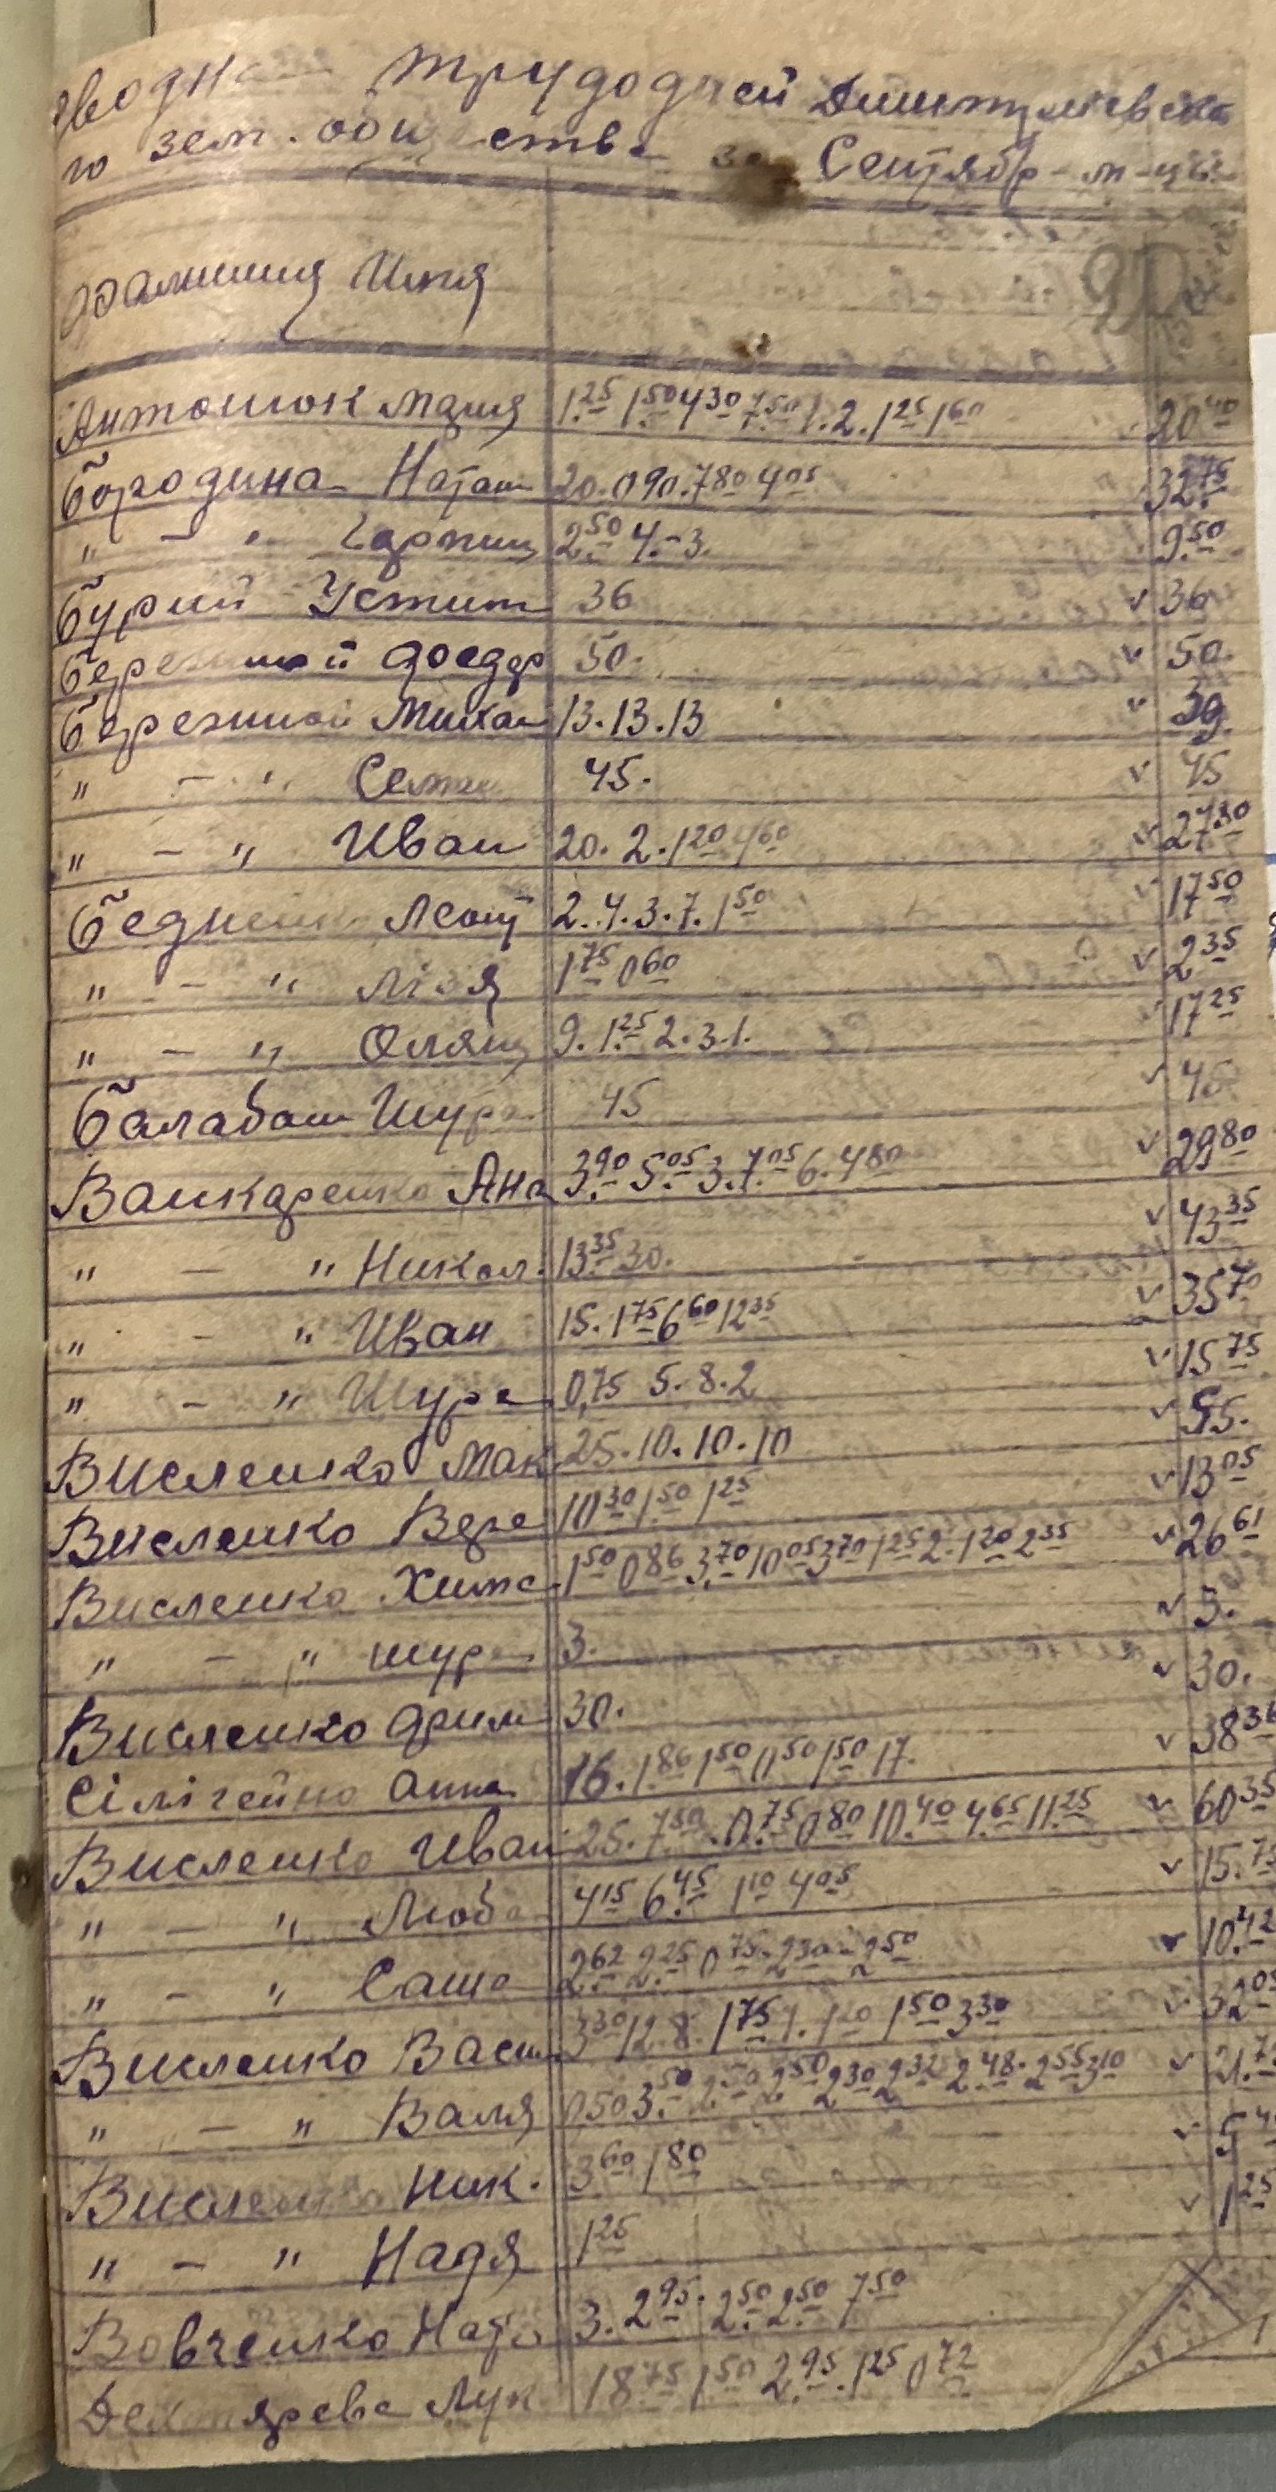 Сводная трудодней
го зем. общества за Сентябр м-ц
Фамилия Имя
Антонюк Мария 1.25 1.50 4 30 7.50 1. 2. 1 25 1 60 20 40
Бородина Наташ 20. 0 90. 7 80 4 05 32.75
" - " 2.50 4. - 3. 9.50
Бурий Устин 36 v 36
Бережной Федор 50. v 50.
Бережной Михаи 13. 13. 13 " 39.
" - " Семен 45. v 45
" - " Иван 20. 2. 1 20 4 60 v 27 80
Бедненко Леонт 2. 4. 3. 7. 1 50 v 17 50
" - " Лідя 1 75 0 60 v 2 35
" - " Оляна 9. 1.25 2. 3. 1. v 17 25
Балабан Шура 45 v 45
Вашкаренко Ана 3.90 5.05 3. 7.05 6. 4 80 v 29 80
" - " Никол. 13.35 30. v 43 35
" - " Иван 15. 1 75 6 60 12 35 v 35 70
" - " Шура 0,75 5. 8. 2 v 15 75
Висленко Мак 25. 10. 10. 10 v 55.
Висленко Вера 10 30 1 50 1 25 v 13 05
Висленко Хима 1 50 0 86 3.70 10 05 3 70 1 25 2. 1 20 2 35 v 26 61
" - " Шура 3. v 3.
Висленко Ефим 30. v 30.
Сілігейно Анна 16. 1 86 1 50 0 50 1 50 17. v 38 36
Висленко Иван 25. 7 50. 0.75 0 80 10.40 4.65 11.25 v 60 35
" - " Люба 4 15 6.45 1 10 4 05 v 15.75
" - " Саша 2.62 2.25 0 75. 2 30 - 2 50 v 10.42
Висленко Васи 3 30 12. 8. 1 75 1. 1 20 1 50 3 30 v 32 05
" - " Валя 0,50 3.50 2 50 2 50 2 30 2 32 2.48. 2 55 3 10 v 21.75
Висленко Ник. 3 60 1 80 v 5 40
" - " Надя 1 25 v 1 25
Вовченко Ната 3. 2 95. 2.50 2.50 7 50
Дехтярева Лук 18 75 1 50 2.95. 1 25 0 72